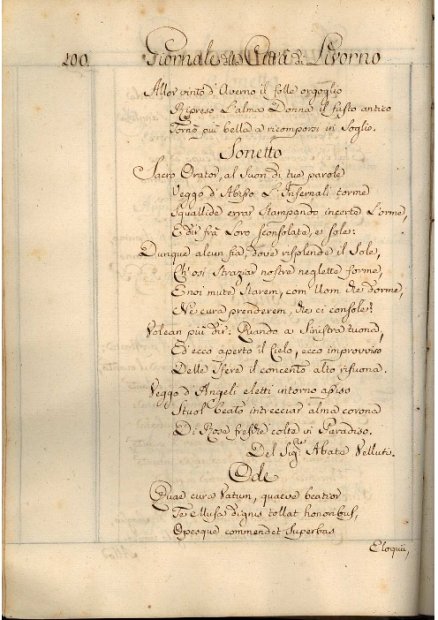 200. Giornale della Città di Livorno
Allor vinto d'Averno il folle orgoglio
Ripreso L'alma Donna il fasto antico
Tornò più bella a ricomporsi in Soglio.
Sonetto
Sacro Orator, al Suon di tue parole
Veggo d'Abisso L'Infernali torme
Squallide errar Stampando incerte L'orme,
E dir frà Loro Sconsolate, e sole:
Dunque alcun fia, dove risplende il Sole,
Ch'osi Straziar nostre neglette forme,
E noi mute Starem, com'Uom che dorme,
Ne cura prenderem, che ci console?
Volean più dir: Quando a Sinistra tuona,
Ed ecco aperto il Cielo, ecco improvviso
Delle Sfere il concento alto risuona.
Veggo d'Angeli eletti intorno assiso
Stuol beato intrecciar alma corona
Di Rose fresche colte in Paradiso.
Del Sig.re Abate Velluti.
Ode
Quae cura Vatum, quaeve beatior
Te Musa dignis tollat honoribus,
Opesque commendet Superbas
Eloquii,